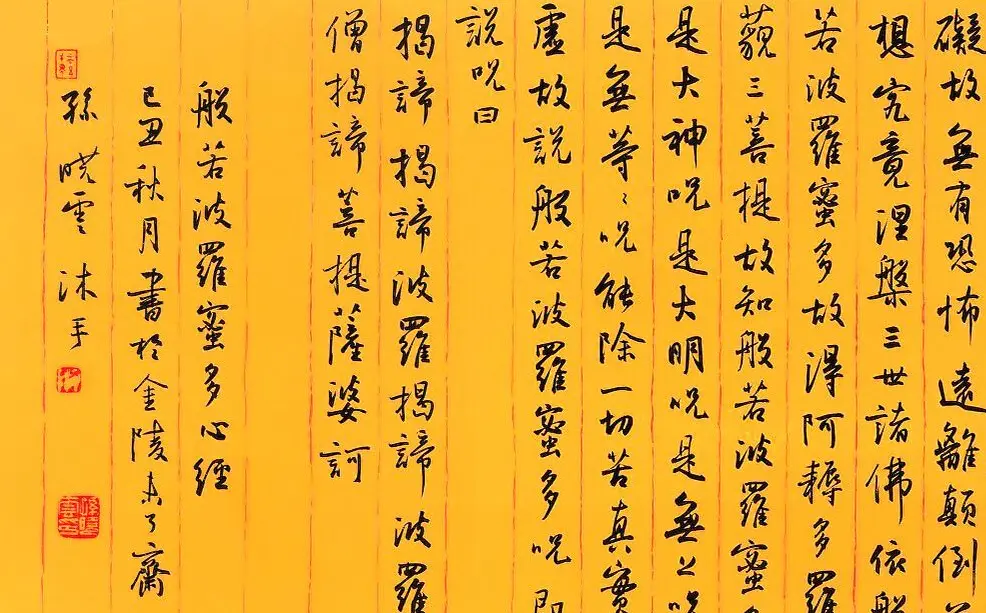 礙故無有恐怖遠離顛倒
想究竟涅槃三世諸佛依般
若波羅蜜多故得阿耨多羅
藐三菩提故知般若波羅蜜多
是大神呪是大明呪是無上呪
是無等〻呪能除一切苦真實
虛故説般若波羅蜜多呪即
説呪曰
揭諦揭諦波羅揭諦波羅
僧揭諦菩提薩婆訶
般若波羅蜜多心經
己丑秋月書於金陵未了齋
孫曉雲沐手